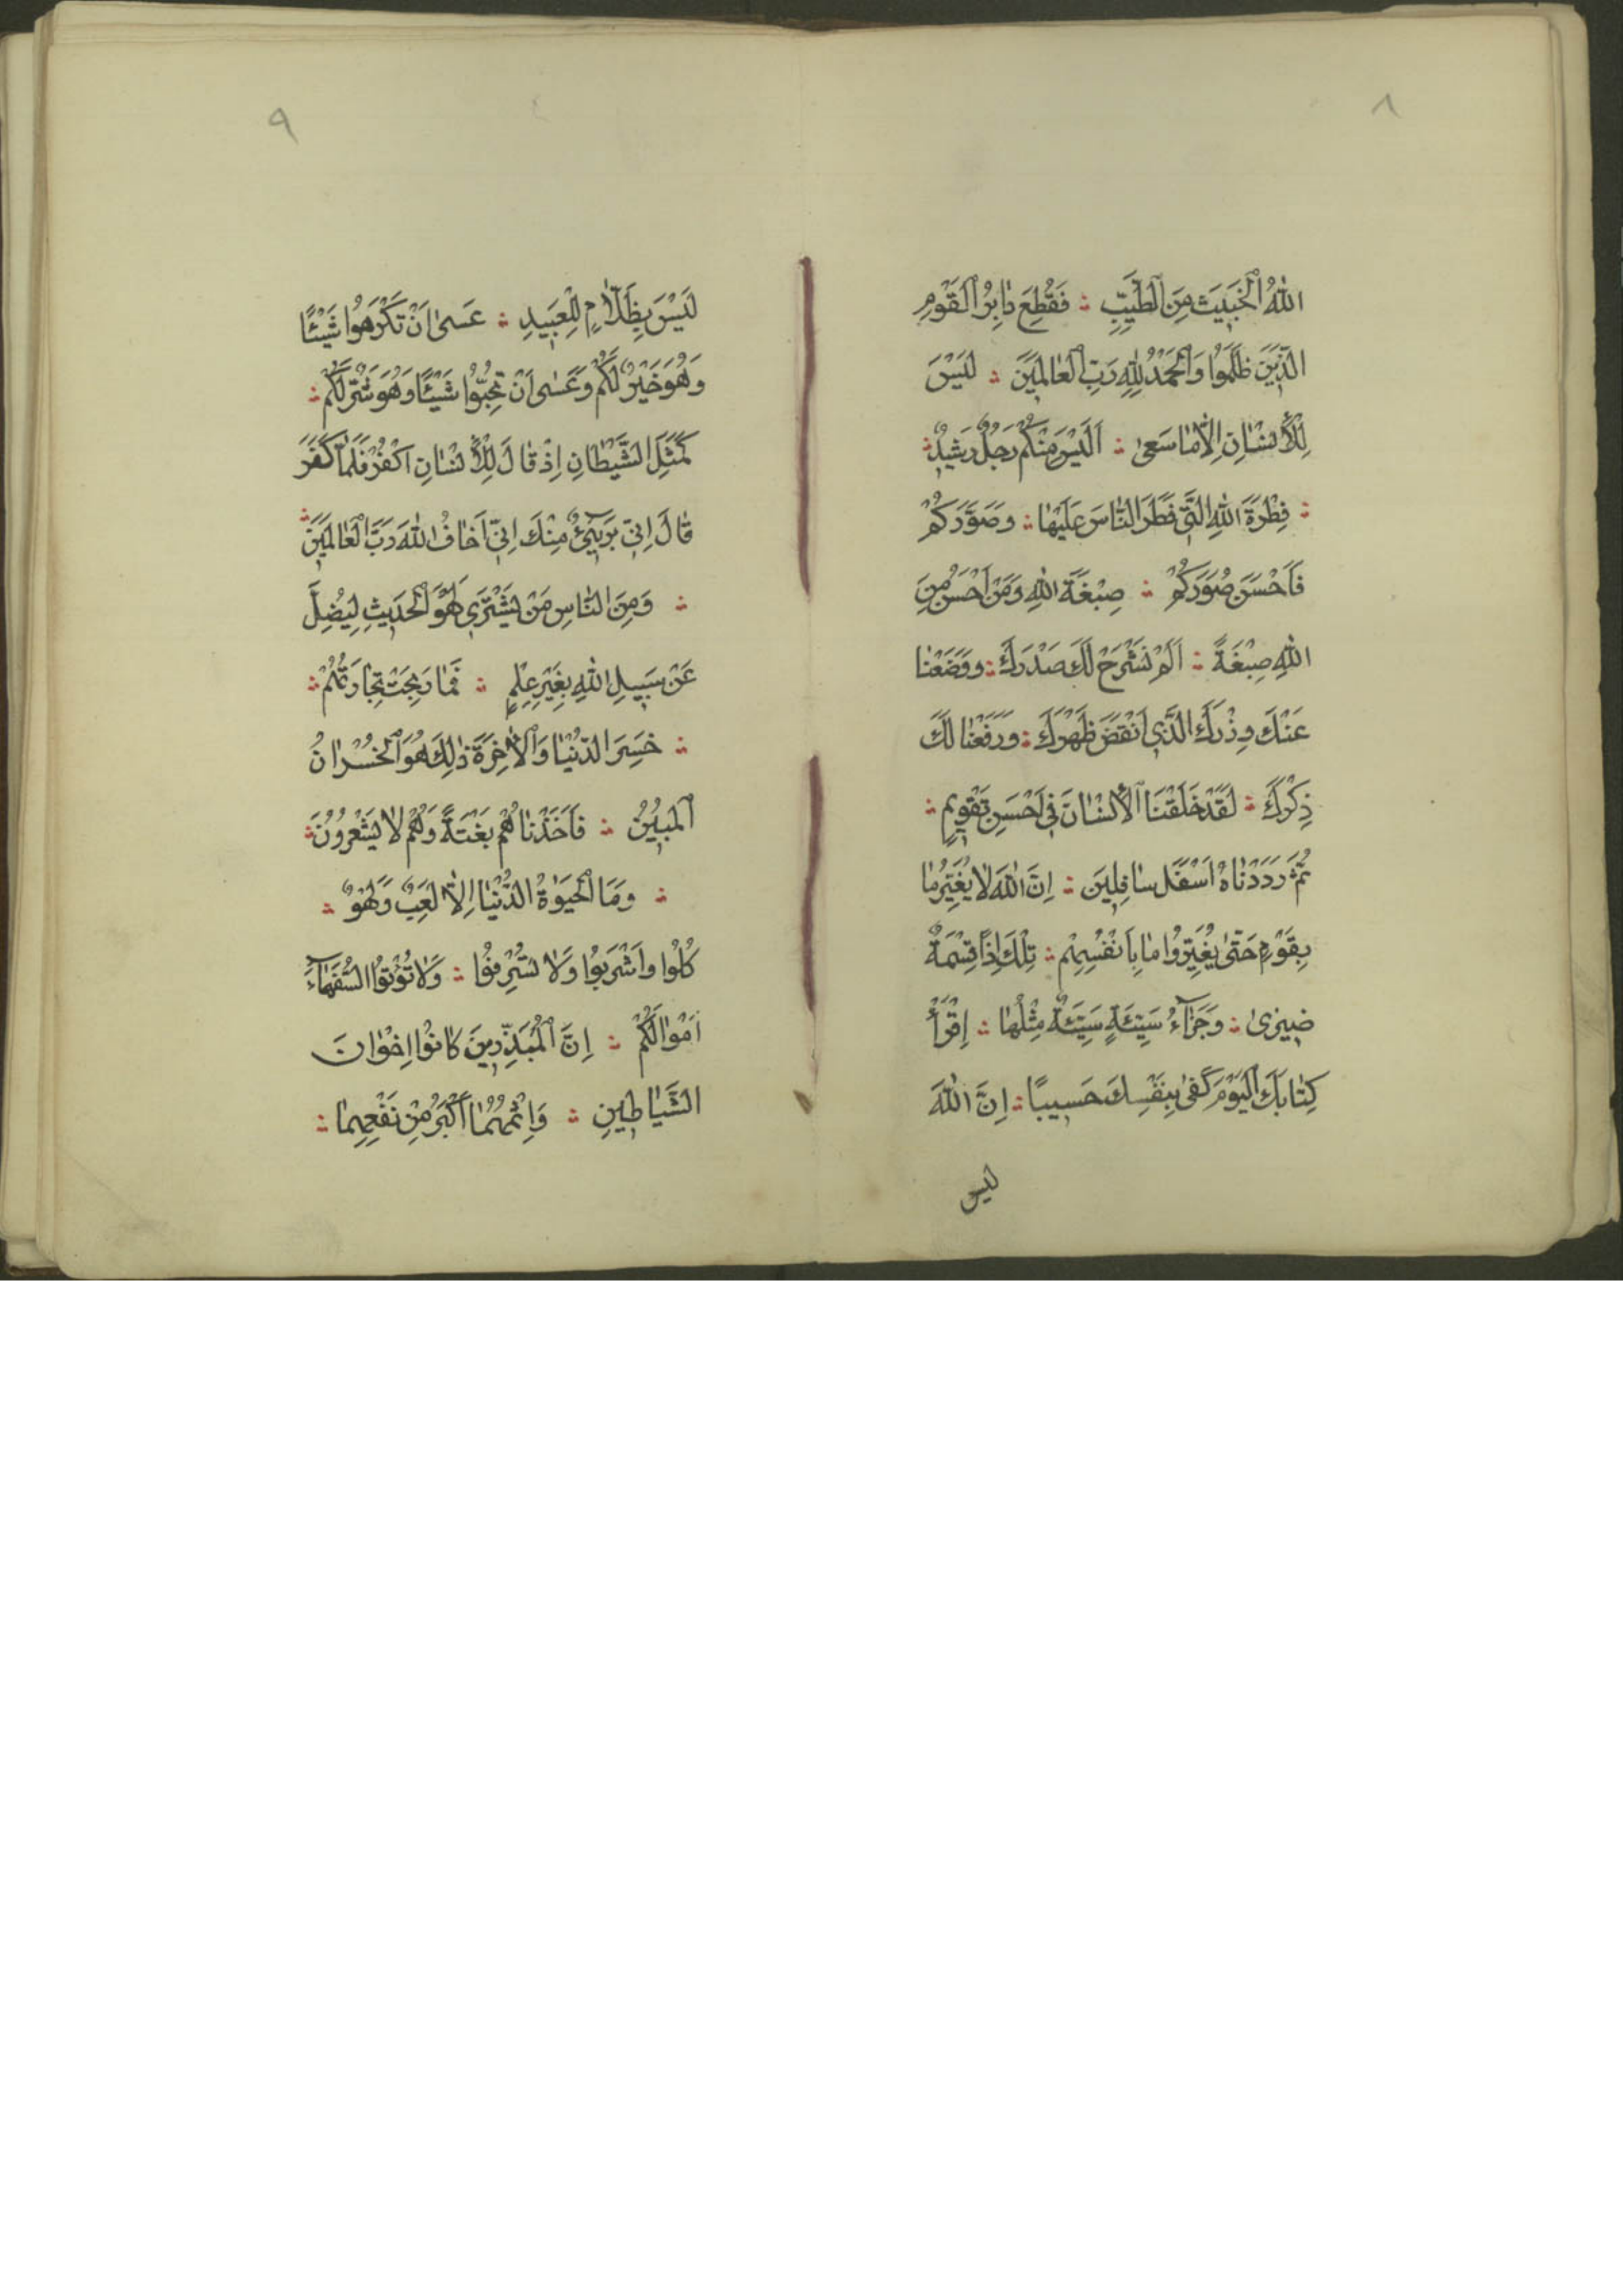 ٨
اللهُ الْخَبِيثَ مِنَ الطَّيِّبِ ؞ فَقُطِعَ دَابِرُ الْقَوْمِ
الَّذِينَ ظَلَمُوا وَالْحَمْدُ لِلّٰهِ رَبِّ الْعَالَمِينَ ؞ لَيْسَ
لِلْأِنْسَانِ اِلَّا مَا سَعٰى ؞ اَلَيْسَ مِنْكُمْ رَجُلٌ رَشِيدٌ ؞
؞ فِطْرَةَ اللهِ الَّتِي فَطَرَ النَّاسَ عَلَيْهَا ؞ وَصَوَّرَكُمْ
فَاَحْسَنَ صُوَرَكُمْ ؞ صِبْغَةَ اللهِ وَمَنْ اَحْسَنُ مِنَ
اللهِ صِبْغَةً ؞ اَلَمْ نَشْرَحْ لَكَ صَدْرَكَ ؞ وَوَضَعْنَا
عَنْكَ وِذْرَكَ الَّذِي اَنْقَضَ ظَهْرَكَ ؞ وَرَفَعْنَا لَكَ
ذِكْرَكَ ؞ لَقَدْ خَلَقْنَا الْأِنْسَانَ فِي اَحْسَنِ تَقْوِيمٍ ؞
ثُمَّ رَدَدْنَاهُ اَسْفَلَ سَافِلِينَ ؞ اِنَّ اللهَ لَا يُغَيِّرُ مَا
بِقَوْمٍ حَتّٰى يُغَيِّرُوا مَا بِاَنْفُسِهِمْ ؞ تِلْكَ اِذًا قِسْمَةٌ
ضِيزٰى ؞ وَجَزَآءُ سَيِّئَةٍ سَيِّئَةٌ مِثْلُهَا ؞ اِقْرَأْ
كِتَابَكَ الْيَوْمَ كَفٰى بِنَفْسِكَ حَسِيبًا ؞ اِنَّ اللهَ
ليس
٩
لَيْسَ بِظَلَّامٍ لِلْعَبِيدِ ؞ عَسٰى اَنْ تَكْرَهُوا شَيْئًا
وَهُوَ خَيْرٌ لَكُمْ وَعَسٰى اَنْ تُحِبُّوا شَيْئًا وَهُوَ شَرٌّ لَكُمْ ؞
كَمَثَلِ الشَّيْطَانِ اِذْ قَالَ لِلْأِنْسَانِ اكْفُرْ فَلَمَّا كَفَرَ
قَالَ اِنِّي بَرِيۤئٌ مِنْكَ اِنِّي اَخَافُ اللهَ رَبَّ الْعَالَمِينَ ؞
؞ وَمِنَ النَّاسِ مَنْ يَشْتَرِي لَهْوَ الْحَدِيثِ لِيُضِلَّ
عَنْ سَبِيلِ اللهِ بِغَيْرِ عِلْمٍ ؞ فَمَا رَبِحَتْ تِجَارَتُهُمْ ؞
؞ خَسِرَ الدُّنْيَا وَالْأٰخِرَةَ ذٰلِكَ هُوَ الْخُسْرَانُ
الْمُبِينُ ؞ فَاَخَذْنَاهُمْ بَغْتَةً وَهُمْ لَا يَشْعُرُونَ ؞
؞ وَمَا الْحَيٰوةُ الدُّنْيَا اِلَّا لَعِبٌ وَلَهْوٌ ؞
كُلُوا وَاشْرَبُوا وَلَا تُسْرِفُوا ؞ وَلَا تُؤْتُوا السُّفَهَآءَ
اَمْوَالَكُمْ ؞ اِنَّ الْمُبَذِّرِينَ كَانُوا اِخْوَانَ
الشَّيَاطِينِ ؞ وَاِثْمُهُمَا اَكْبَرُ مِنْ نَفْعِهِمَا ؞